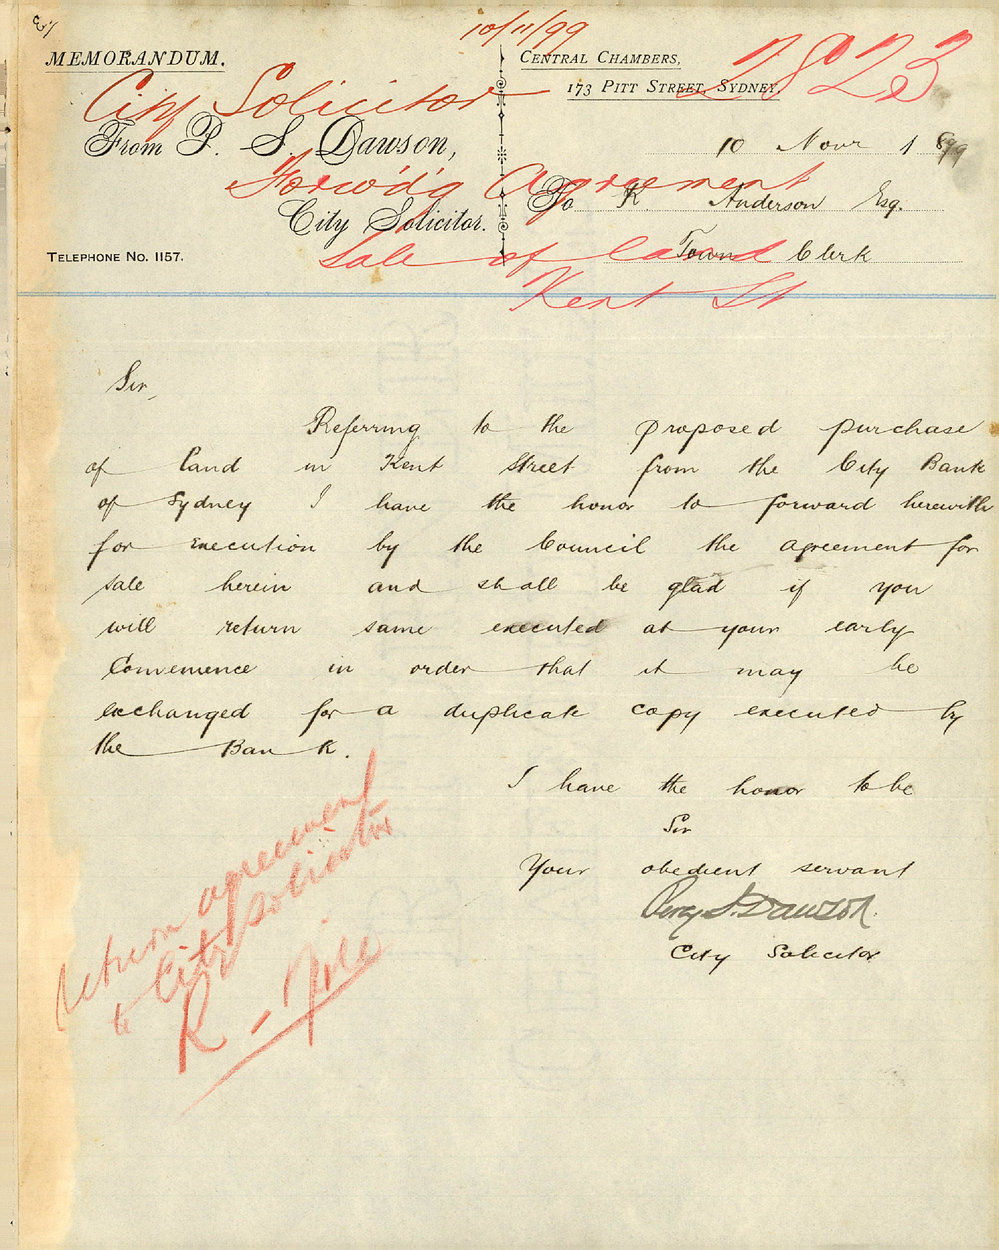 10/11/99
MEMORANDUM.
CENTRAL CHAMBERS,
2823
173 PITT STREET, SYDNEY,
City Solicitor
From P. S. Dawson,
10 Novr 1899
Forwd'g Agreement
To K. Anderson Esq.
City Solicitor.
Sale of land
Town Clerk
TELEPHONE No. 1157.
Kent St
Sir,
Referring to the proposed purchase
of land in Kent Street from the City Bank
of Sydney I have the honor to forward herewith
for execution by the Council the agreement for
sale herein and shall be glad if you
will return same executed at your early
Convenience in order that it may be
exchanged for a duplicate copy executed by
the Bank.
I have the honor to be
Sir
Your obedient servant
Percy S. Dawson.
City Solicitor
Return agreement
to City Solicitor
R - File